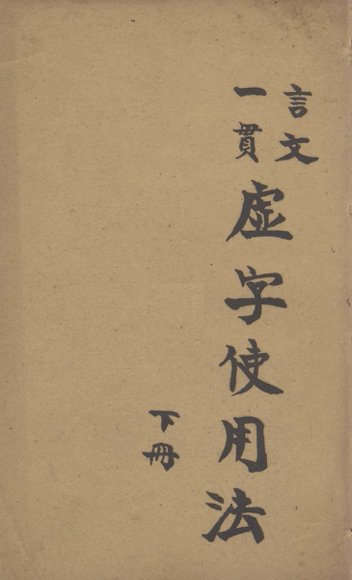 言文
一貫
虛字使用法
下冊